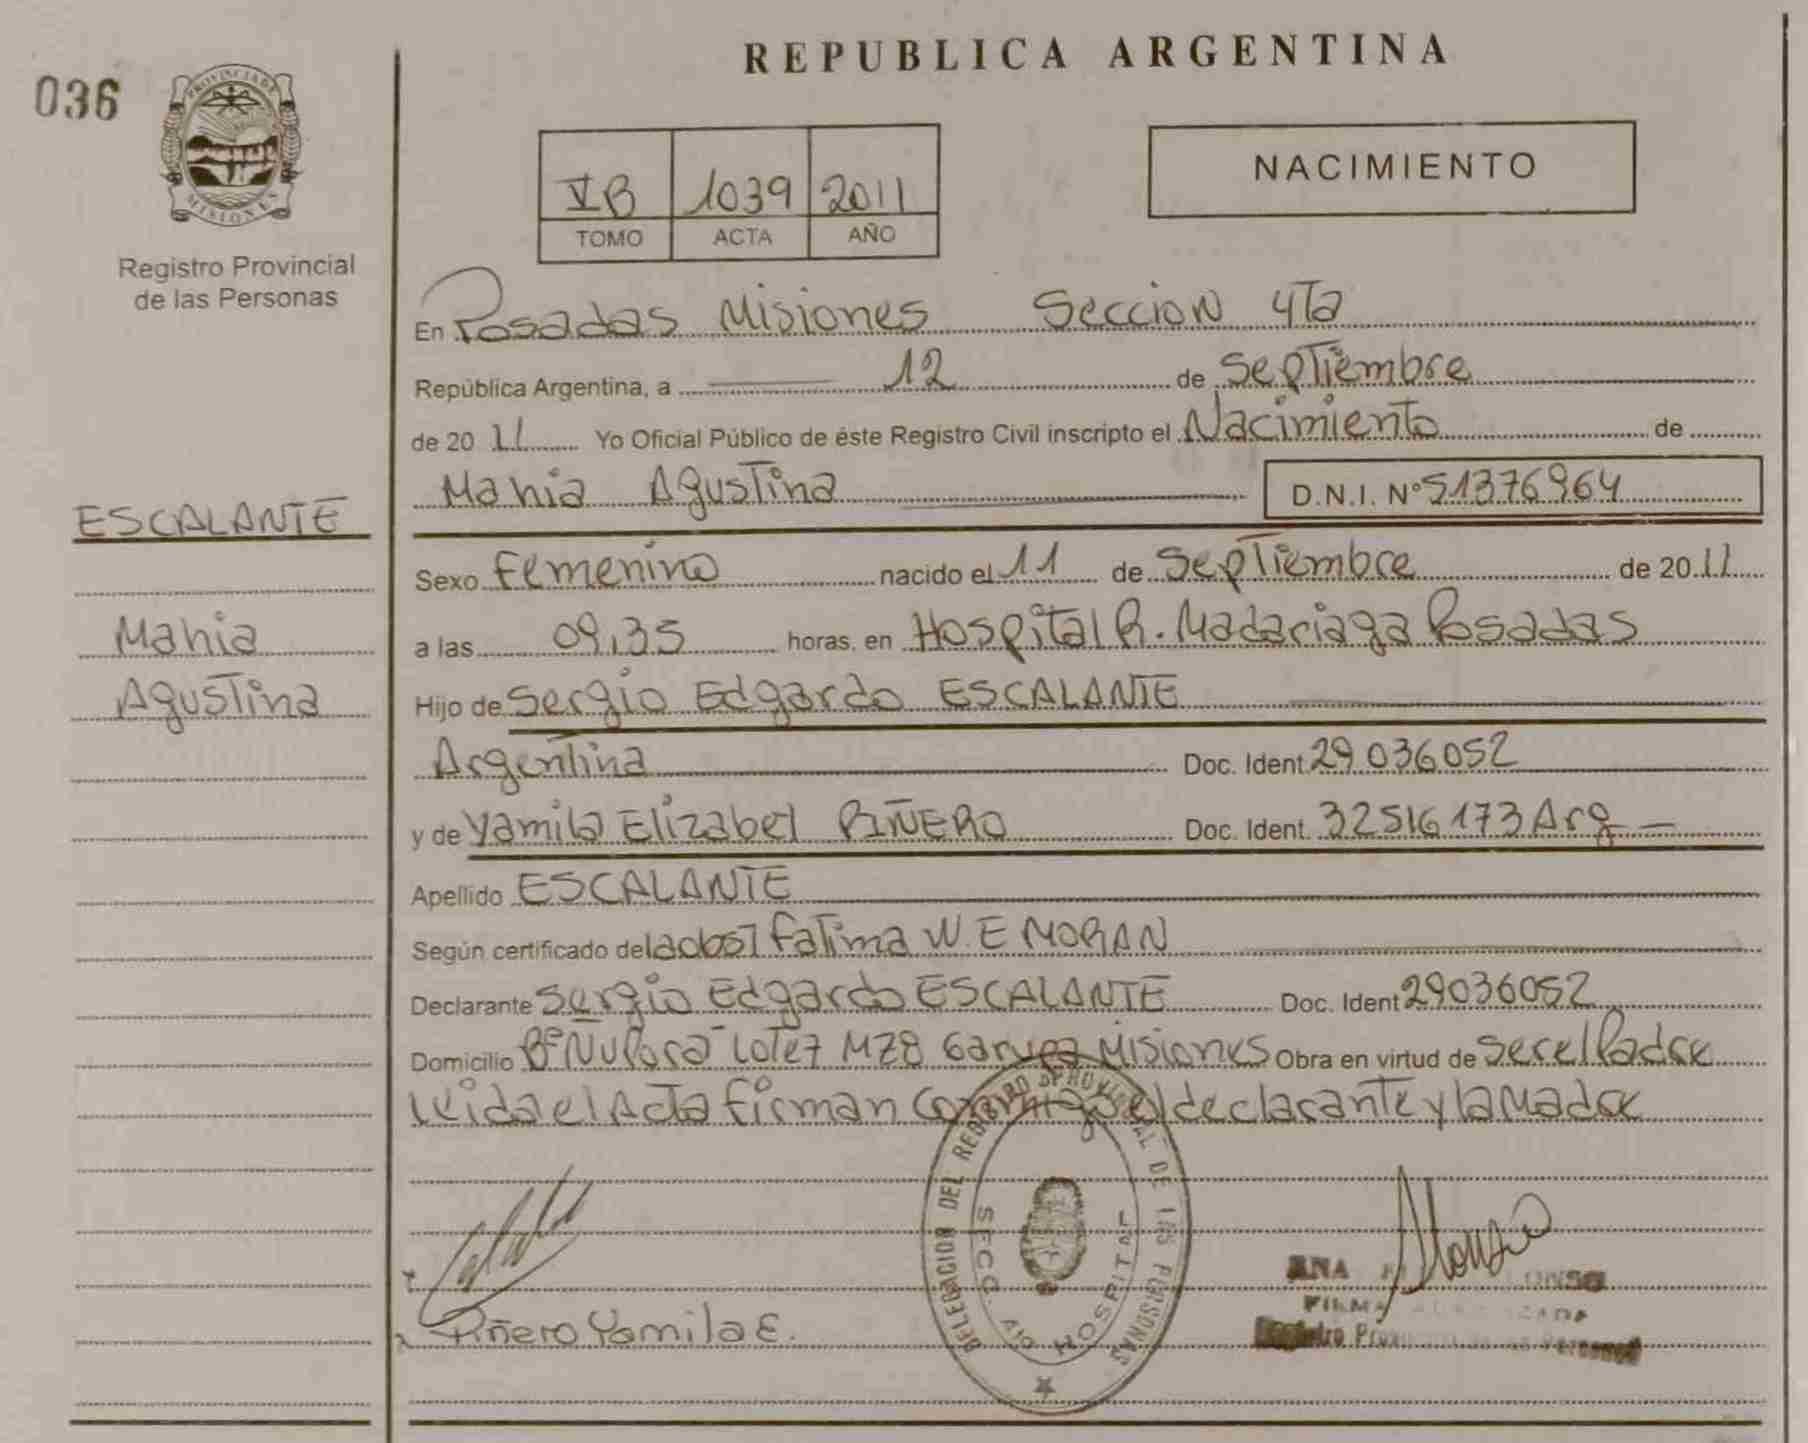 REPUBLICA ARGENTINA
036
PROVINCIA DE
MISIONES
Registro Provincial
de las Personas
NACIMIENTO
VB 1039 2011
TOMO ACTA AÑO
En Posadas Misiones Seccion 4Ta
República Argentina, a 12 de Septiembre
de 2011 Yo Oficial Público de éste Registro Civil inscripto el Nacimiento de
Mahia Agustina D.N.I. N° 51376964
ESCALANTE
Mahia
Agustina
Sexo Femenino nacido el 11 de Septiembre de 2011
a las 09,35 horas, en Hospital R. Madariaga Posadas
Hijo de Sergio Edgardo ESCALANTE
Argentina Doc. Ident 29.036.052
y de Yamila Elizabel PIÑERO Doc. Ident. 32516173 Arg
Apellido ESCALANTE
Según certificado de la obst Fatima W. E MORAN
Declarante Sergio Edgardo ESCALANTE Doc. Ident 29036052
Domicilio B° Ñu Pora Lote 7 MZ8 Garupa Misiones Obra en virtud de Ser el Padre
leida el Acta firman conmigo el declarante y la Madre
DELEGACION DEL REGISTRO PROVINCIAL DE LAS PERSONAS
SECC. 4ta HOSPITAL
Piñero Yamila E.
ANA
FIRMA